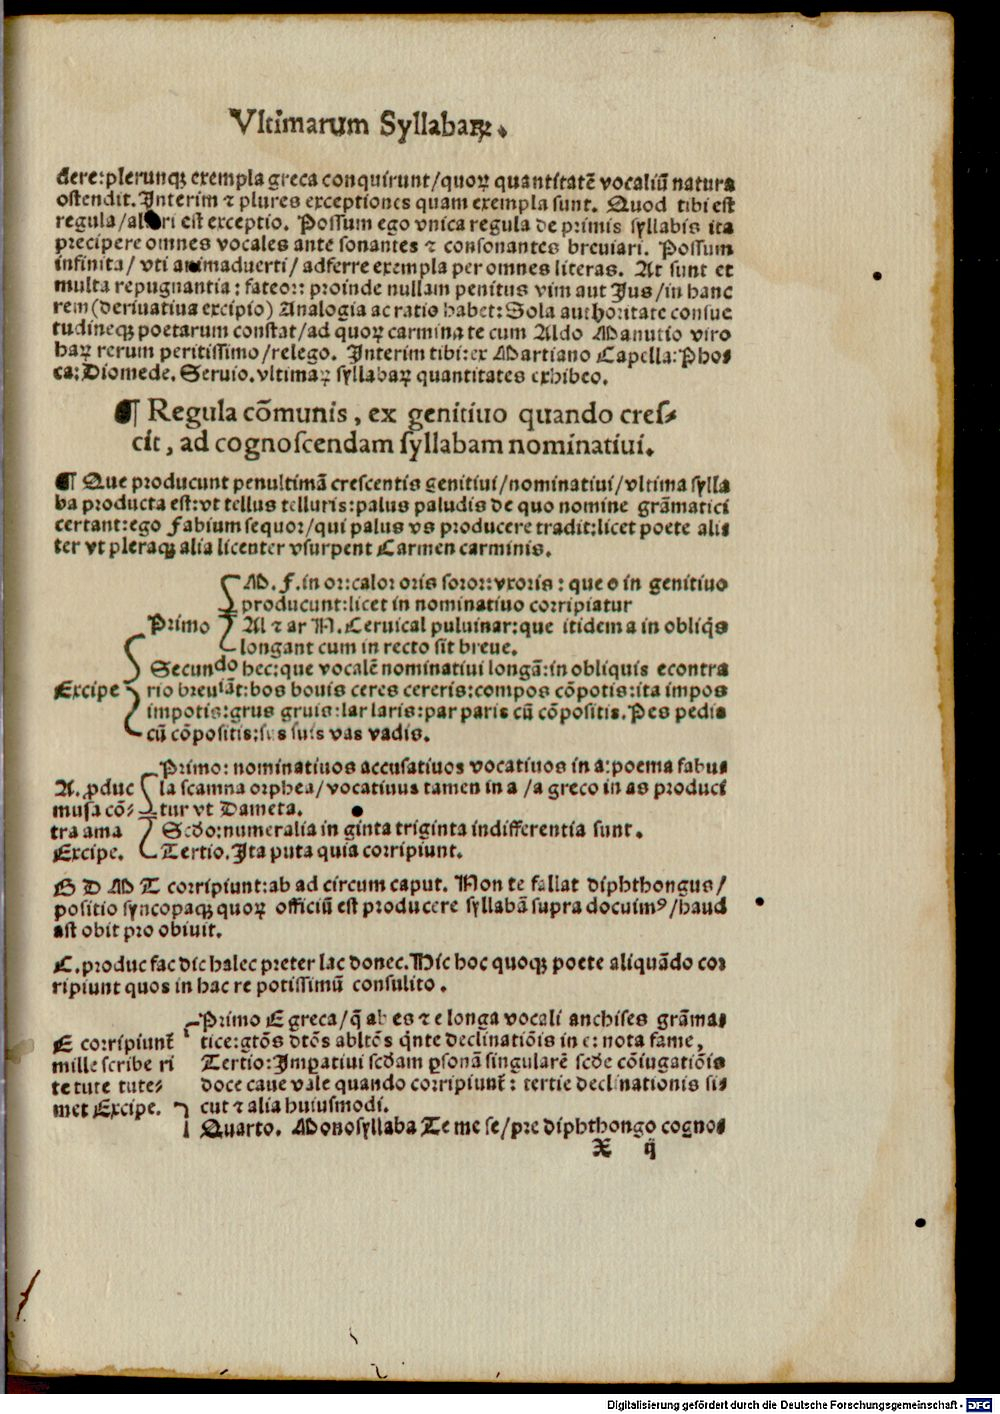 Vltimarum Syllabaꝝ.
dere:plerunqꝫ exempla greca conquirunt/quoꝝ quantitatē vocaliū natura
ostendit. Interim ⁊ plures exceptiones quam exempla sunt. Quod tibi est
regula/alteri est exceptio. Possum ego vnica regula de primis syllabis ita
precipere omnes vocales ante sonantes ⁊ consonantes breuiari. Possum
infinita/ vti animaduerti/ adferre exempla per omnes literas. At sunt et
multa repugnantia: fateor: proinde nullam penitus vim aut Jus/in hanc
rem(deriuatiua excipio) Analogia ac ratio habet: Sola authoritate consue
tudineqꝫ poetarum constat/ad quoꝝ carmina te cum Aldo Manutio viro
haꝝ rerum peritissimo/relego. Interim tibi:ex Martiano Capella:Phos
ca:Diomede. Seruio.vltimaꝝ syllabaꝝ quantitates exhibeo.
¶ Regula cōmunis, ex genitiuo quando cres-
cit, ad cognoscendam syllabam nominatiui.
¶ Que producunt penultimā crescentis genitiui/nominatiui/vltima sylla
ba producta est:vt tellus telluris:palus paludis de quo nomine grāmatici
certant:ego Fabium sequor/qui palus vs producere tradit:licet poete alis
ter vt pleraqꝫ alia licenter vsurpent Carmen carminis.
M. F. in or:calor oris soror:vxoris: que o in genitiuo
producunt:licet in nominatiuo corripiatur
Primo Al ⁊ ar N. Ceruical puluinar:que itidem a in obliq̄s
longant cum in recto sit breue.
Secundo hec:que vocalē nominatiui longā:in obliquis econtra
Excipe rio breuiāt:bos bouis ceres cereris:compos cōpotis:ita impos
impotis:grus gruis:lar laris:par paris cū cōpositis. Pes pedis
cū cōpositis:sus suis vas vadis.
Primo: nominatiuos accusatiuos vocatiuos in a:poema fabus
A. ꝓduc la scamna orphea/vocatiuus tamen in a /a greco in as produci
musa cō- tur vt Dameta.
tra ama Scdo:numeralia in ginta triginta indifferentia sunt.
Excipe. Tertio. Ita puta quia corripiunt.
B D M T corripiunt:ab ad circum caput. Non te fallat diphthongus/
positio syncopaqꝫ quoꝝ officiū est producere syllabā supra docuimꝰ/haud
ast obit pro obiuit.
C.produc fac dic halec preter lac donec.Nic hoc quoqꝫ poete aliquādo cor
ripiunt quos in hac re potissimū consulito.
Primo E greca/q̄ ab es ⁊ e longa vocali anchises grāmas
E corripiunt̄ tice:gtōs dtōs abltōs q̄nte declinatiōis in e: nota fame,
mille scribe ri Tertio:Imꝑatiui scdam ꝑsonā singularē scde cōiugatiōis
te tute tute- doce caue vale quando corripiunt̄: tertie declinationis sis
met Excipe. cut ⁊ alia huiusmodi.
Quarto. Monosyllaba Te me se/pre diphthongo cognos
X ij
Digitalisierung gefördert durch die Deutsche Forschungsgemeinschaft - DFG